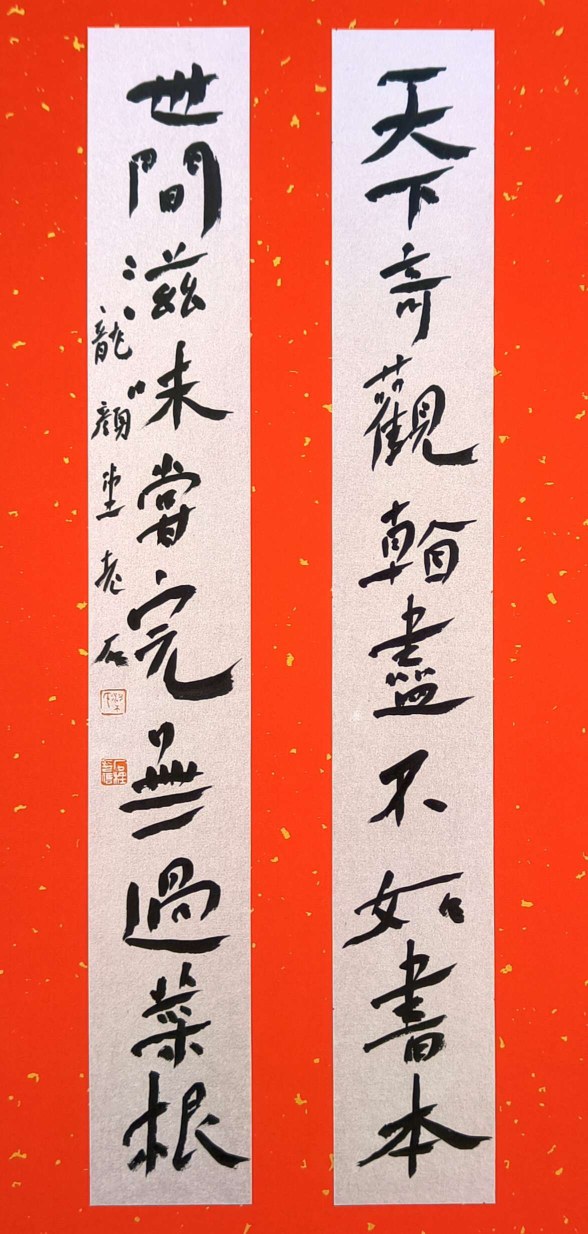 天下奇觀看盡不如書本
世間滋味嘗完無過菜根
龍顏堂老石